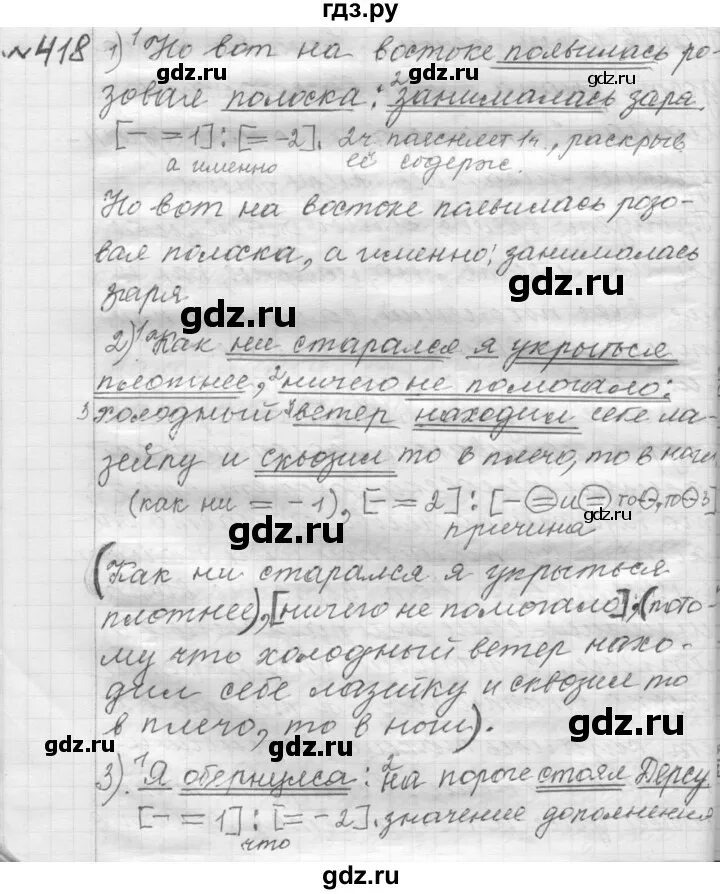 гдз.ру
№418 1) ¹Но вот на востоке появилась ро-
зовая полоска: ²занималась заря.
[- = 1] : [= - 2]. 2ч поясняет 1ч, раскрыв.
а именно её содерж.
Но вот на востоке появилась розо-
вая полоска, а именно: занималась
заря
2) ¹Как ни старался я укрыться
плотнее, ²ничего не помогало:
³холодный ветер находил себе ла-
зейку и сквозил то в плечо, то в ноги
(как ни = - 1), [- = 2] : [- = и = то, то 3]
причина
(Как ни старался я укрыться
плотнее), [ничего не помогало], (пото-
му что холодный ветер нахо-
дил себе лазейку и сквозил то
в плечо, то в ноги).
3). ¹Я обернулся: ²на пороге стоял Дерсу
[- = 1] : [= - 2]. значение дополнения
что
gdz.ru
gdz.ru
gdz.ru
gdz.ru
gdz.ru
gdz.ru
gdz.ru
gdz.ru
gdz.ru
gdz.ru
gdz.ru
gdz.ru
gdz.ru